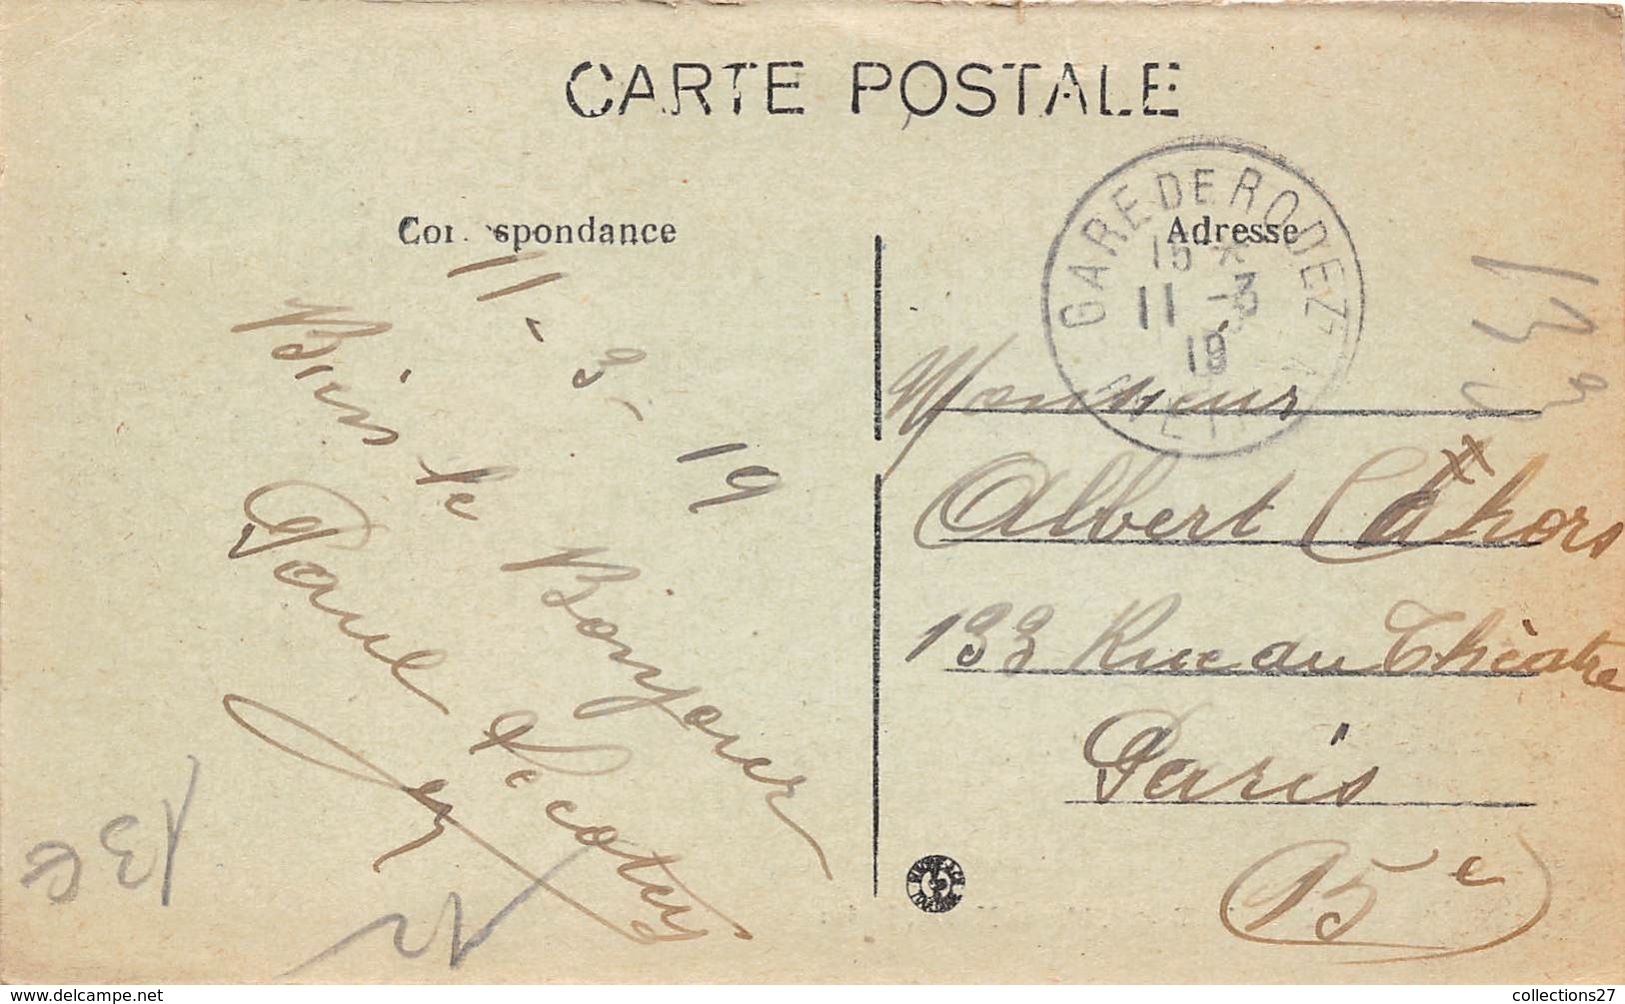 CARTE POSTALE
Correspondance
Adresse
GARE DE RODEZ
15 *
11 -3
19
11-3-19
Bien le Bonjour
Paul
Monsieur
Albert Cahors
133 Rue du Théâtre
Paris
15e
13 €
12
www.delcampe.net
collections27